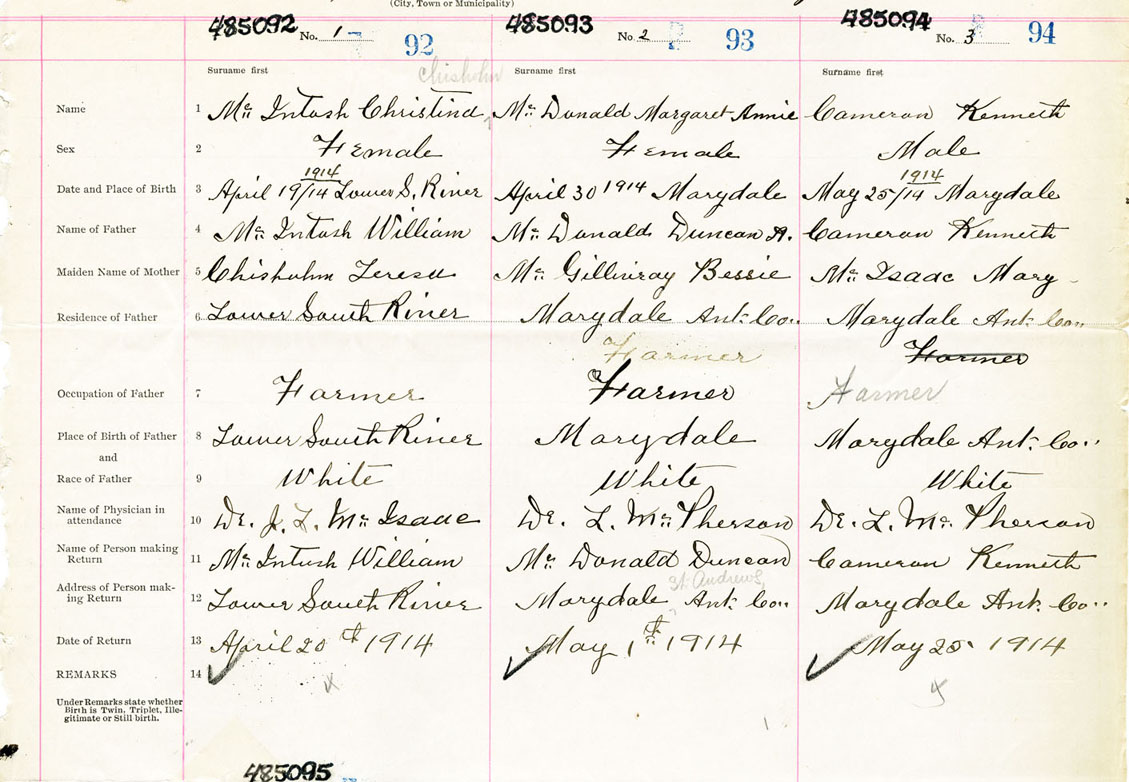 (City, Town or Municipality)
485092 No. 1 92 485093 No. 2 93 485094 No. 3 94
Surname first Surname first Surname first
Chisholm
Name 1 Mc Intosh Christina Mc Donald Margaret Annie Cameron Kenneth
Sex 2 Female Female Male
1914 1914
Date and Place of Birth 3 April 19/14 Lower S. River April 30 1914 Marydale May 25/14 Marydale
Name of Father 4 Mc Intosh William Mc Donald Duncan A. Cameron Kenneth
Maiden Name of Mother 5 Chisholm Teresa Mc Gillivray Bessie Mc Isaac Mary
Residence of Father 6 Lower South River Marydale Ant. Co.. Marydale Ant. Co..
Farmer Farmer
Occupation of Father 7 Farmer Farmer Farmer
Place of Birth of Father 8 Lower South River Marydale Marydale Ant. Co..
and
Race of Father 9 White White White
Name of Physician in
attendance 10 Dr. J. L. Mc Isaac Dr. L. Mc Pherson Dr. L. Mc Pherson
Name of Person making
Return 11 Mc Intosh William Mc Donald Duncan Cameron Kenneth
St. Andrews,
Address of Person mak-
ing Return 12 Lower South River Marydale Ant. Co.. Marydale Ant. Co..
Date of Return 13 April 20th 1914 May 1th 1914 May 25. 1914
REMARKS 14
Under Remarks state whether
Birth is Twin, Triplet, Ille-
gitimate or Still birth.
485095